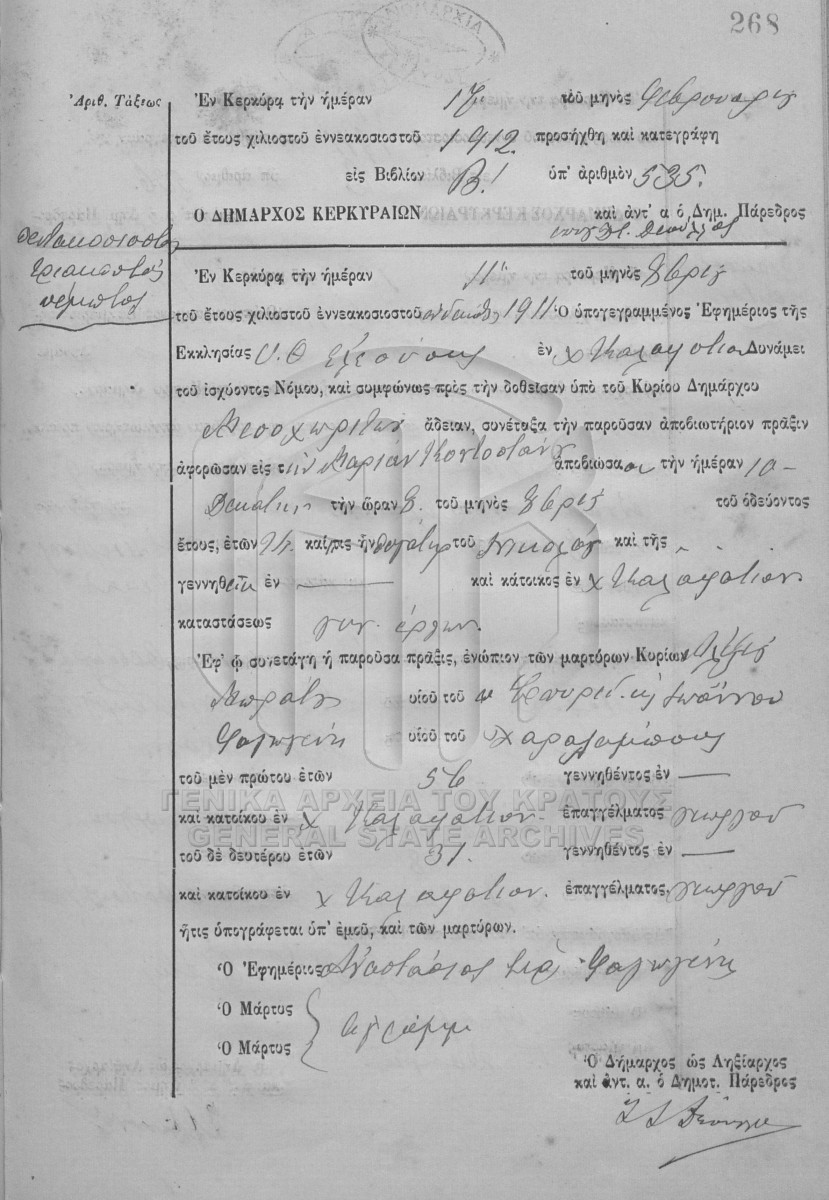 268
Ἀριθ. Τάξεως
Ἐν Κερκύρᾳ τὴν ἡμέραν 17 τοῦ μηνὸς Φεβρουαρίου
τοῦ ἔτους χιλιοστοῦ ἐννεακοσιοστοῦ 1912 προσήχθη καὶ κατεγράφη
εἰς Βιβλίον Β! ὑπ' ἀριθμὸν 535.
Ο ΔΗΜΑΡΧΟΣ ΚΕΡΚΥΡΑΙΩΝ καὶ ἀντ' α ὁ Δημ. Πάρεδρος
πεντακοσιοστὸς
τριακοστὸς
πέμπτος
Ἐν Κερκύρᾳ τὴν ἡμέραν 11 τοῦ μηνὸς 8βρίου
τοῦ ἔτους χιλιοστοῦ ἐννεακοσιοστοῦ ἑνδεκάτου 1911 Ὁ ὑπογεγραμμένος Ἐφημέριος τῆς
Ἐκκλησίας Υ. Θ Ἐλεούσης ἐν χ Καλαφατιον Δυνάμει
τοῦ ἰσχύοντος Νόμου, καὶ συμφώνως πρὸς τὴν δοθεῖσαν ὑπὸ τοῦ Κυρίου Δημάρχου
Μεσοχωριτῶν ἄδειαν, συνέταξα τὴν παροῦσαν ἀποβιωτήριον πρᾶξιν
ἀφορῶσαν εἰς τὴν Μαρίαν Κοντοστάνου ἀποβιώσα τὴν ἡμέραν 10 -
Δεκάτην τὴν ὥραν 8. τοῦ μηνὸς 8βρίου τοῦ ὁδεύοντος
ἔτους, ἐτῶν καὶ τις ἦν θυγάτηρ τοῦ Νικολάου καὶ τῆς
γεννηθεῖσα ἐν — καὶ κάτοικος ἐν χ Καλαφατιον
καταστάσεως γυν. ἔργων.
Ἐφ' ᾧ συνετάγη ἡ παροῦσα πρᾶξις, ἐνώπιον τῶν μαρτύρων Κυρίων Ἀλεξίου
υἱοῦ τοῦ Σπυρίδ. κὴ Ἰωάννου
Φαγωγένη υἱοῦ τοῦ Χαραλάμπους
τοῦ μὲν πρώτου ἐτῶν 56 γεννηθέντος ἐν —
ΓΕΝΙΚΑ ΑΡΧΕΙΑ ΤΟΥ ΚΡΑΤΟΥΣ
καὶ κατοίκου ἐν χ Καλαφατιον. ἐπαγγέλματος γεωργοῦ
GENERAL STATE ARCHIVES
τοῦ δὲ δευτέρου ἐτῶν 31. γεννηθέντος ἐν —
καὶ κατοίκου ἐν χ Καλαφατιον. ἐπαγγέλματος, γεωργοῦ
ἥτις ὑπογράφεται ὑπ' ἐμοῦ, καὶ τῶν μαρτύρων.
Ὁ Ἐφημέριος Ἀναστάσιος ἱερ Φαγωγένης
Ὁ Μάρτυς
ἀγράμμ
Ὁ Μάρτυς
Ὁ Δήμαρχος ὡς Ληξίαρχος
καὶ ἀντ. α. ὁ Δημοτ. Πάρεδρος